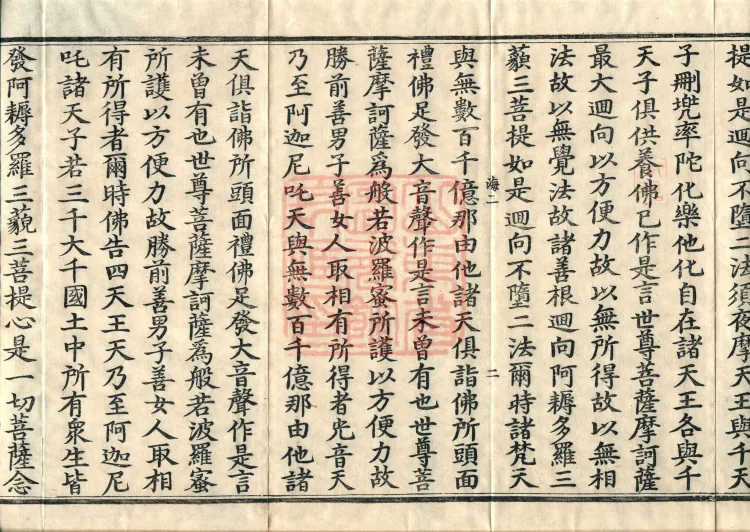 提如是迴向不墮二法須夜摩天王與千天
子刪兜率陀化樂他化自在諸天王各與千
天子俱供養佛已作是言世尊菩薩摩訶薩
最大迴向以方便力故以無所得故以無相
法故以無覺法故諸善根迴向阿耨多羅三
藐三菩提如是迴向不墮二法爾時諸梵天
海二
二
與無數百千億那由他諸天俱詣佛所頭面
禮佛足發大音聲作是言未曾有也世尊菩
薩摩訶薩為般若波羅蜜所護以方便力故
勝前善男子善女人取相有所得者光音天
乃至阿迦尼吒天與無數百千億那由他諸
天俱詣佛所頭面禮佛足發大音聲作是言
未曾有也世尊菩薩摩訶薩為般若波羅蜜
所護以方便力故勝前善男子善女人取相
有所得者爾時佛告四天王天乃至阿迦尼
吒諸天子若三千大千國土中所有眾生皆
發阿耨多羅三藐三菩提心是一切菩薩念